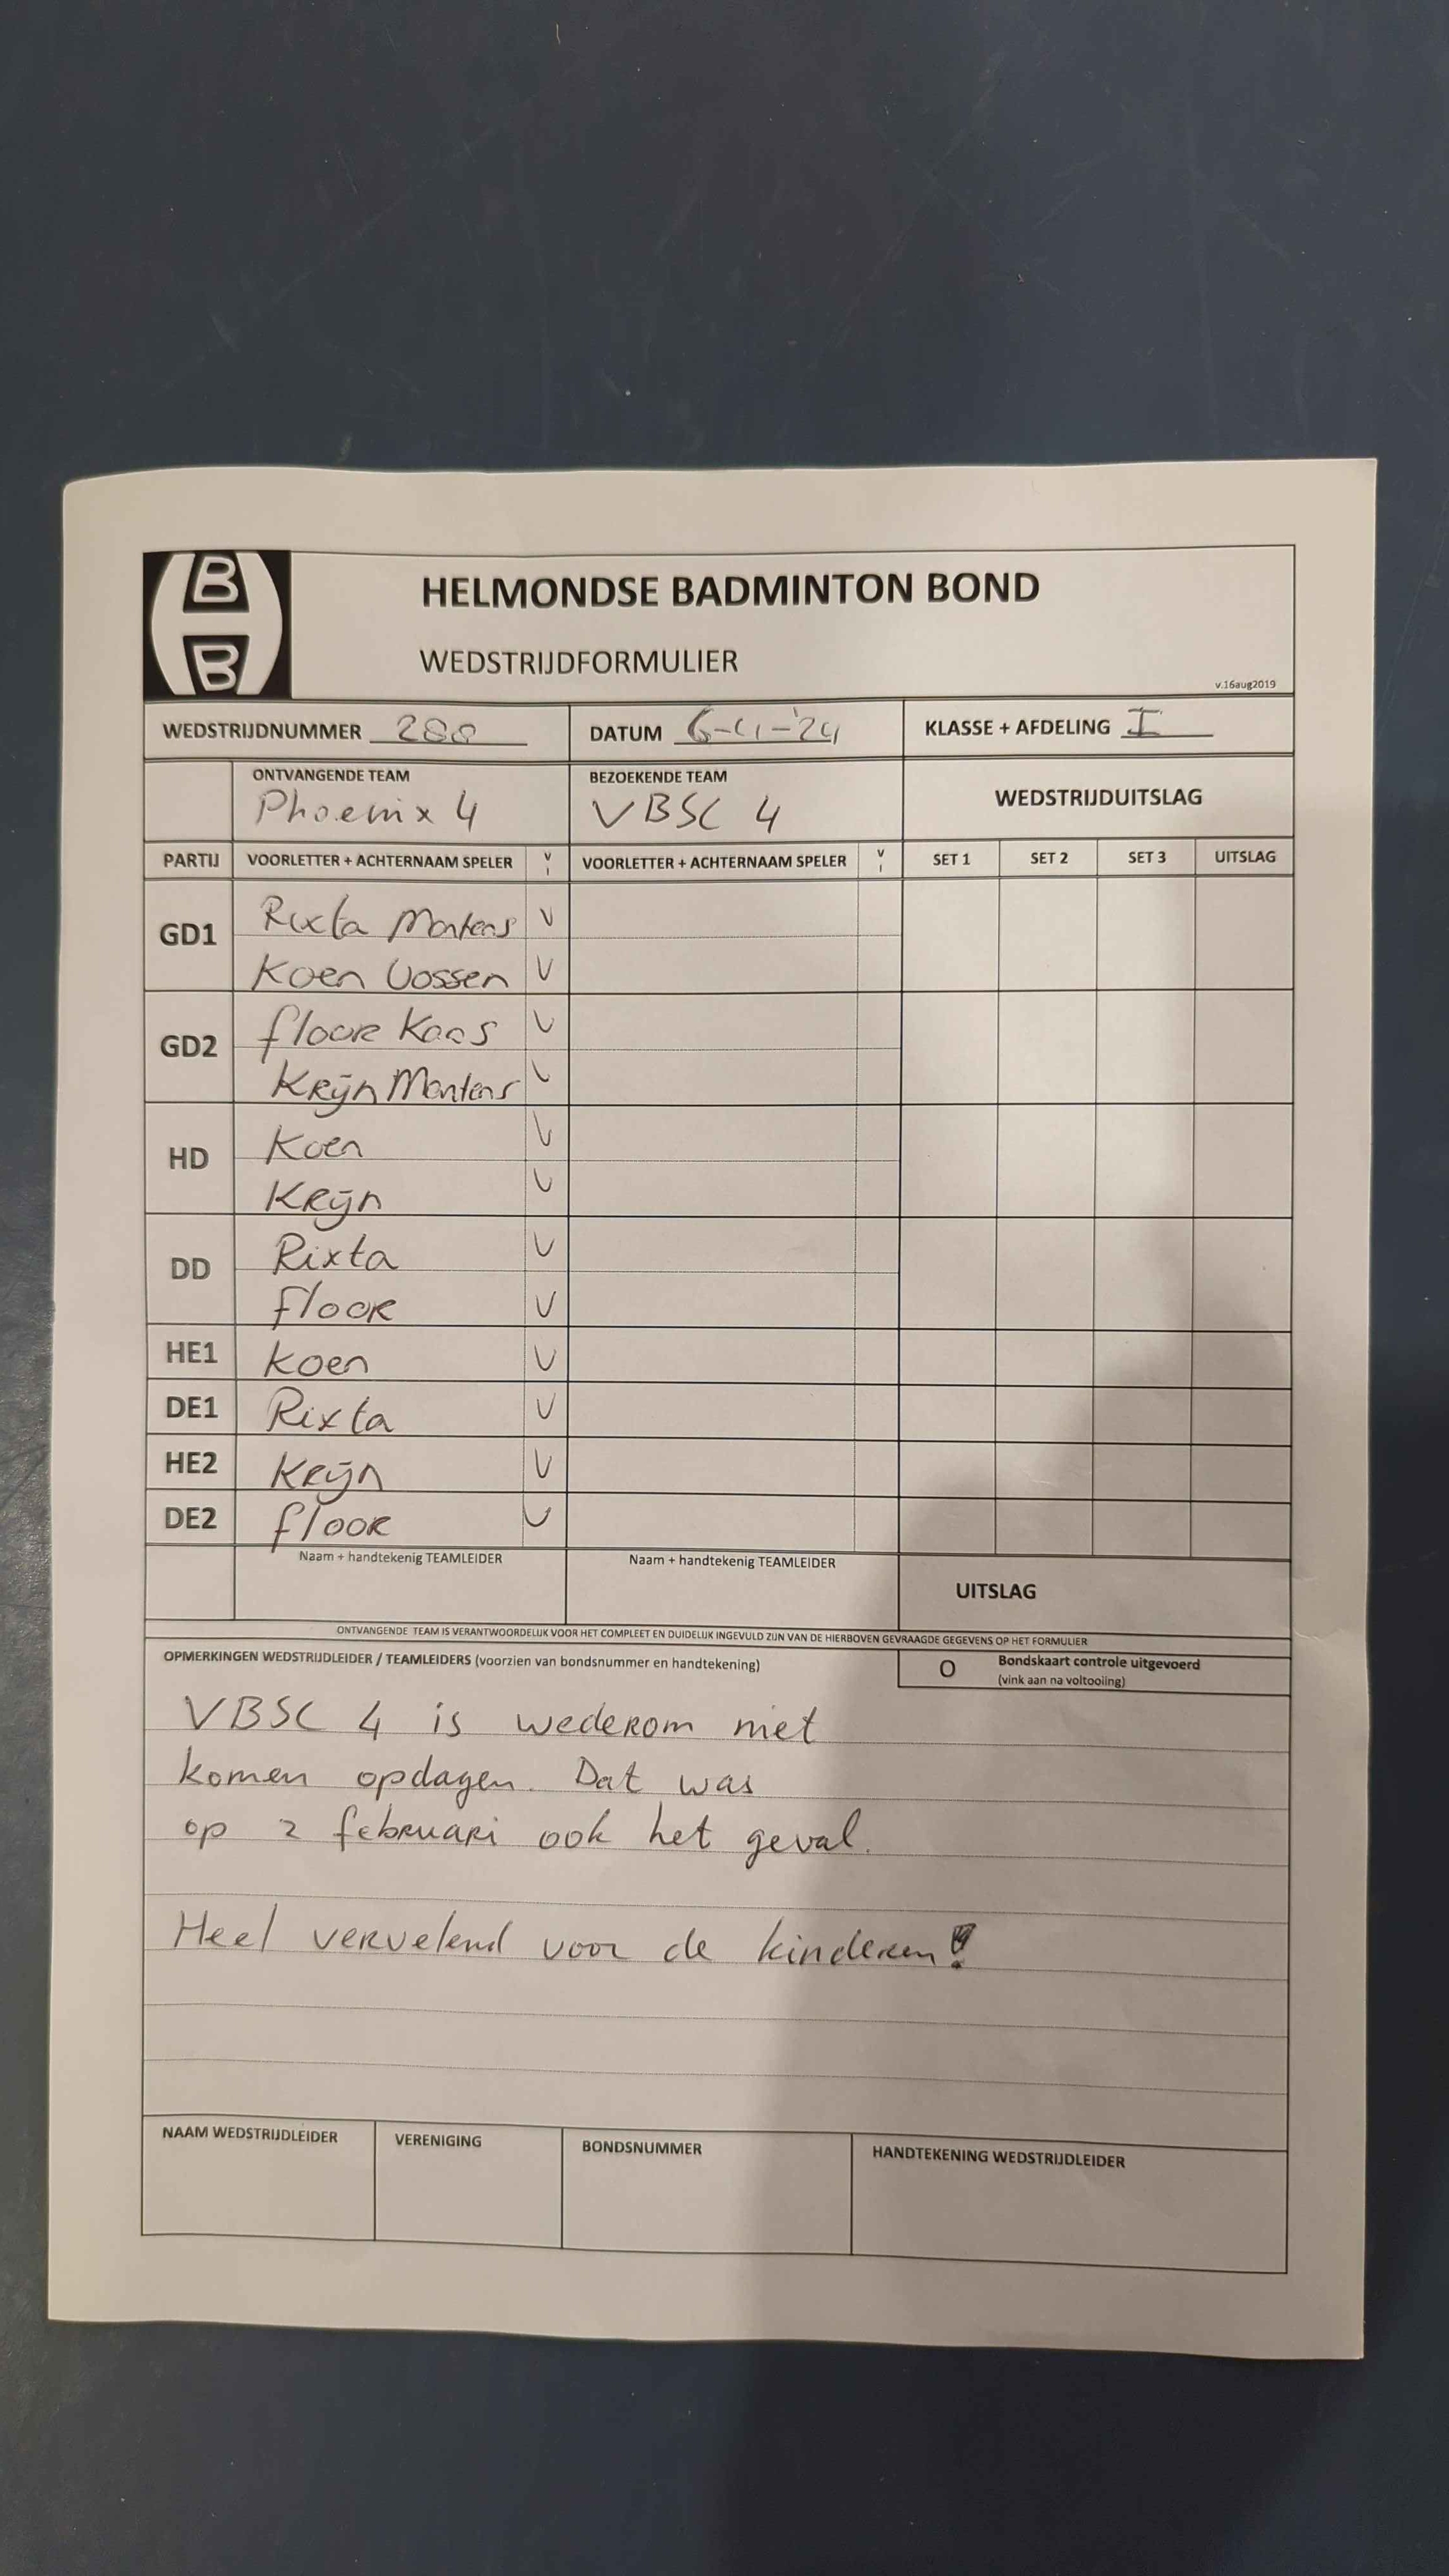 B
B
HELMONDSE BADMINTON BOND
WEDSTRIJDFORMULIER
v.16aug2019
WEDSTRIJDNUMMER 288 DATUM 6-4-'24 KLASSE + AFDELING I
ONTVANGENDE TEAM BEZOEKENDE TEAM WEDSTRIJDUITSLAG
Phoenix 4 VBSC 4
PARTIJ VOORLETTER + ACHTERNAAM SPELER V VOORLETTER + ACHTERNAAM SPELER V SET 1 SET 2 SET 3 UITSLAG
GD1 Rixta Martens V
Koen Vossen V
GD2 floor Kaas V
Krijn Martens V
HD Koen V
Krijn V
DD Rixta V
floor V
HE1 Koen V
DE1 Rixta V
HE2 Krijn V
DE2 floor V
Naam + handtekenig TEAMLEIDER Naam + handtekenig TEAMLEIDER UITSLAG
ONTVANGENDE TEAM IS VERANTWOORDELIJK VOOR HET COMPLEET EN DUIDELIJK INGEVULD ZIJN VAN DE HIERBOVEN GEVRAAGDE GEGEVENS OP HET FORMULIER
OPMERKINGEN WEDSTRIJDLEIDER / TEAMLEIDERS (voorzien van bondsnummer en handtekening) O Bondskaart controle uitgevoerd
(vink aan na voltooiing)
VBSC 4 is wederom niet
komen opdagen. Dat was
op 2 februari ook het geval.
Heel vervelend voor de kinderen!
NAAM WEDSTRIJDLEIDER VERENIGING BONDSNUMMER HANDTEKENING WEDSTRIJDLEIDER